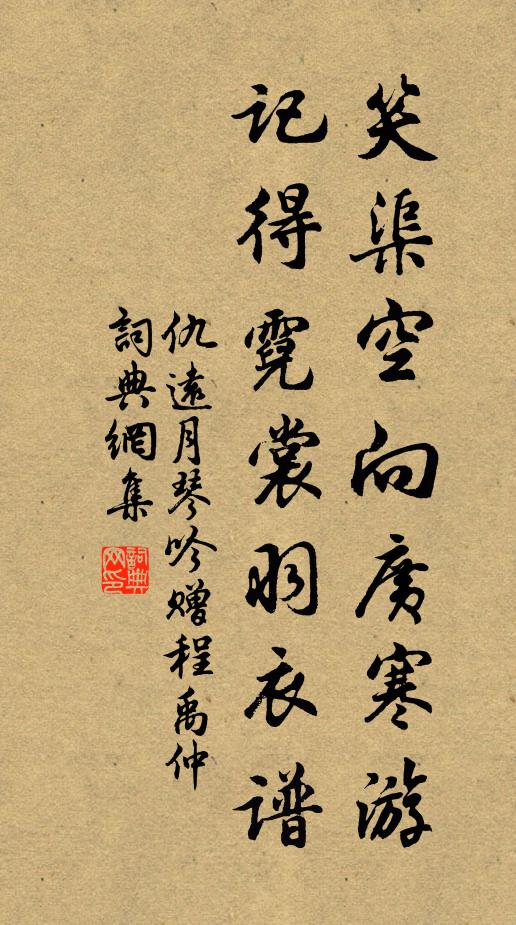 笑渠空向广寒游
记得霓裳羽衣谱
仇遠月琴吟赠程禹仲
詞典網集
詞典
网印